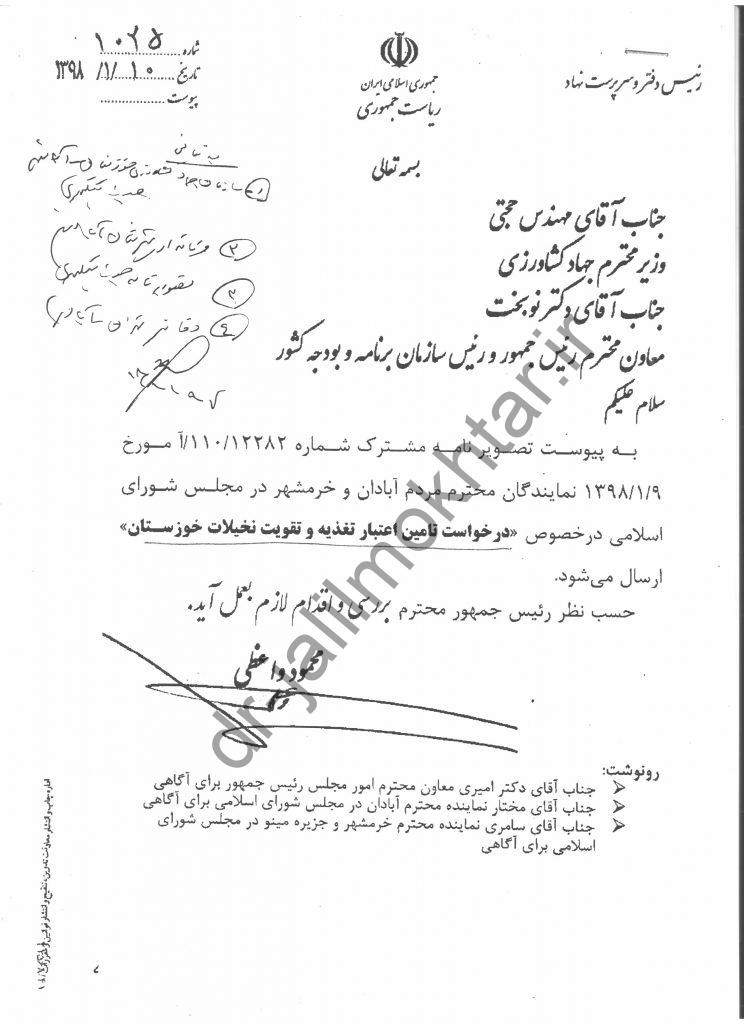 رئیس دفتر و سرپرست نهاد
جمهوری اسلامی ایران
ریاست جمهوری
شماره ۱۰۲۵
تاریخ ۱۳۹۸/۱/۱۰
پیوست
بسمه تعالی
جناب آقای مهندس حجتی
وزیر محترم جهاد کشاورزی
جناب آقای دکتر نوبخت
معاون محترم رئیس جمهور و رئیس سازمان برنامه و بودجه کشور
سلام علیکم
به پیوست تصویر نامه مشترک شماره ۱۱۰/۱۲۲۸۲/آ مورخ
۱۳۹۸/۱/۹ نمایندگان محترم مردم آبادان و خرمشهر در مجلس شورای
اسلامی درخصوص «درخواست تامین اعتبار تغذیه و تقویت نخیلات خوزستان»
ارسال می‌شود.
حسب نظر رئیس جمهور محترم بررسی و اقدام لازم بعمل آید.
محمود واعظی
dr.jalilmokhtar.ir
رونوشت:
جناب آقای دکتر امیری معاون محترم امور مجلس رئیس جمهور برای آگاهی
جناب آقای مختار نماینده محترم آبادان در مجلس شورای اسلامی برای آگاهی
جناب آقای سامری نماینده محترم خرمشهر و جزیره مینو در مجلس شورای
اسلامی برای آگاهی